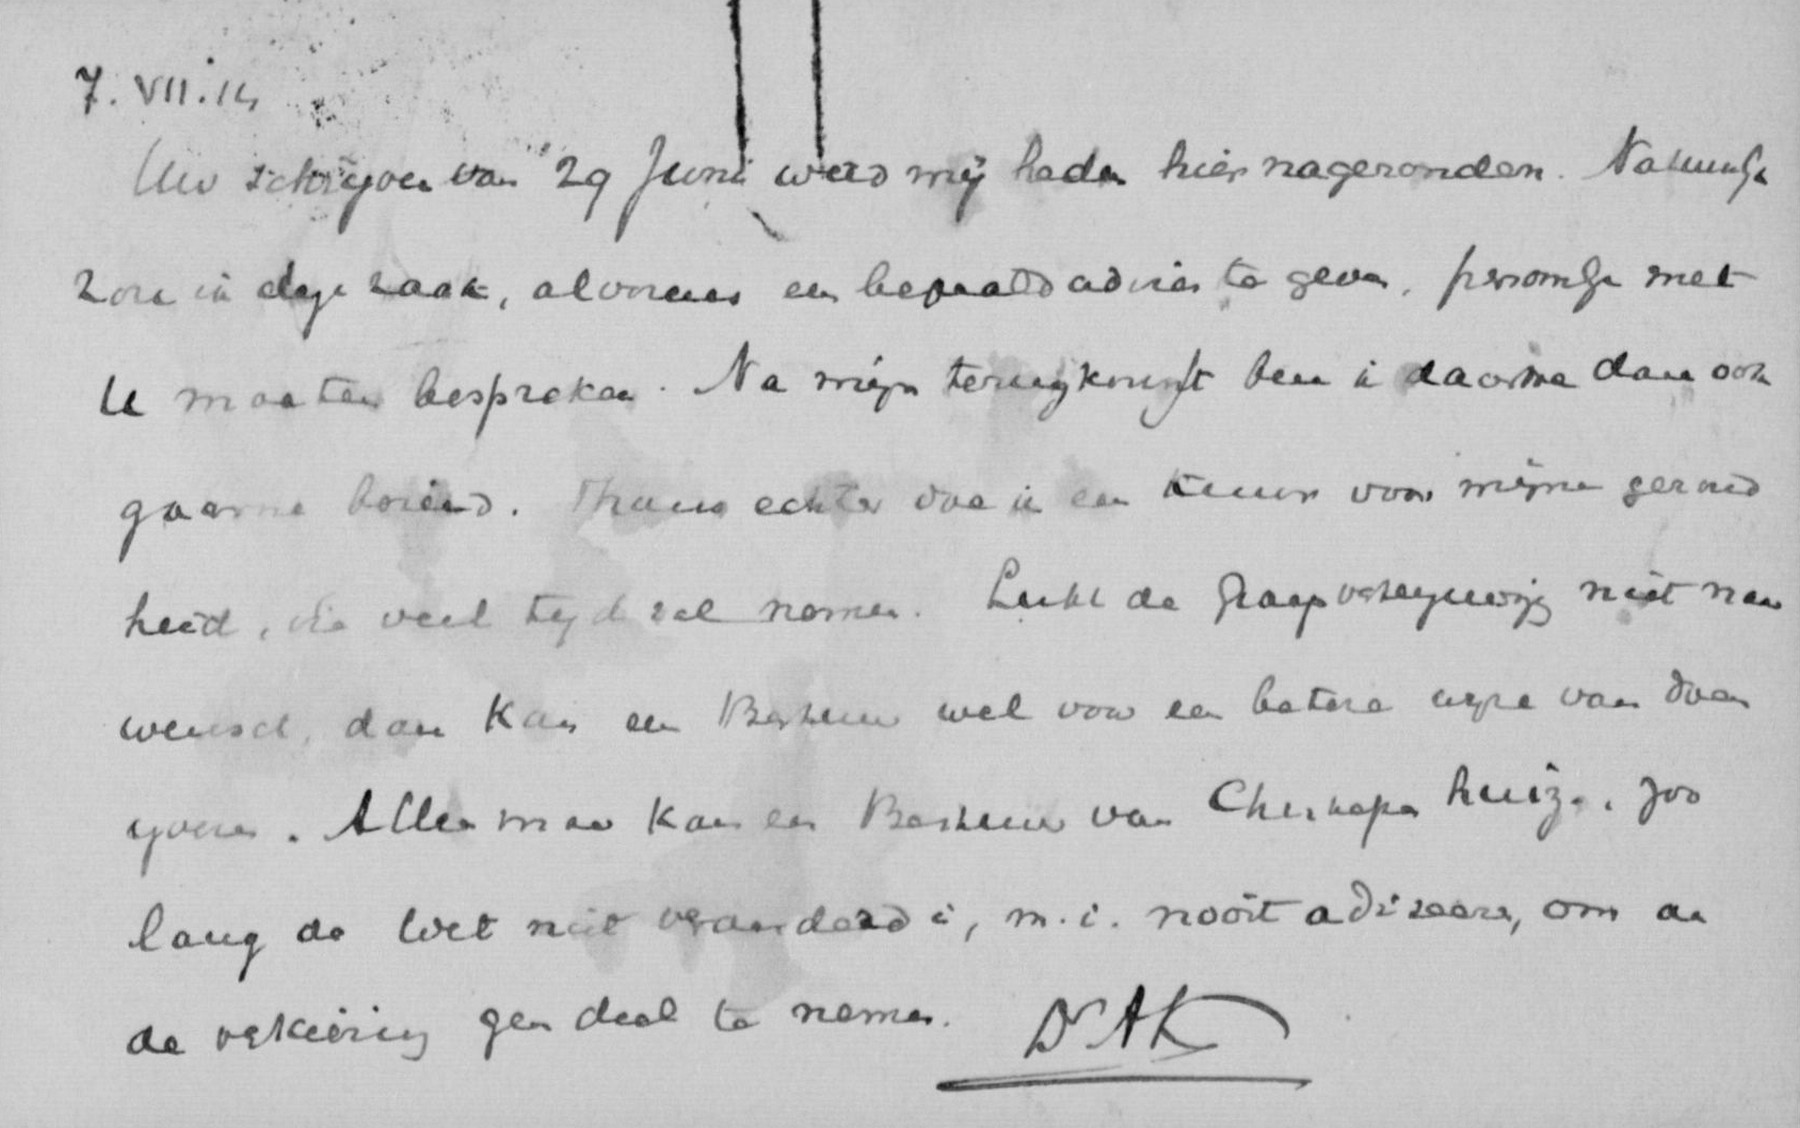 7.VII.14
Uw schrijven van 29 Juni werd mij heden hier nagezonden. Natuurlijk
zou ik deze zaak, alvorens een bepaald advies te geven, persoonlijk met
U moeten bespreken. Na mijn terugkomst ben ik daartoe dan ook
gaarne bereid. Thans echter doe ik een kuur voor mijne gezond
heid, die veel tijd zal nemen. Lukt de niet naar
wensch, dan kan een Bestuur wel voor een betere wijze van doen
ijveren. Alleen maar kan een Bestuur van huize, zoo
lang de Wet niet veranderd is, m.i. nooit adviseeren, om aan
de verkiezing geen deel te nemen. Dr AK